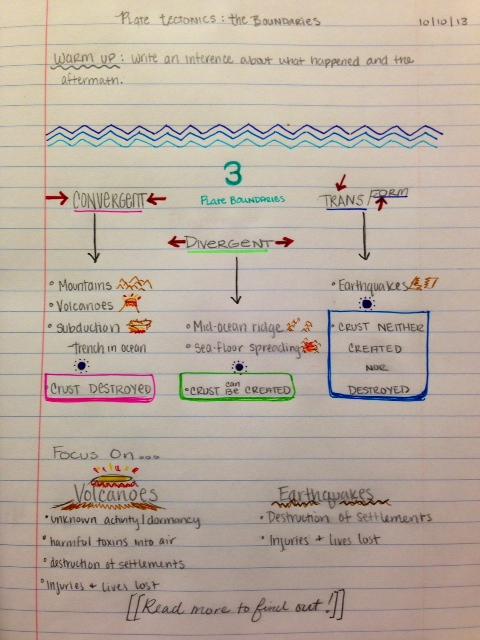 Plate Tectonics: the Boundaries 10/10/13
Warm up: Write an inference about what happened and the
aftermath.
3
Plate Boundaries
Convergent
Trans/form
Divergent
• Mountains
• Volcanoes
• subduction
trench in ocean
Crust destroyed
• Mid-ocean ridge
• sea-floor spreading
• Crust can be created
• Earthquakes
• Crust neither
created
nor
destroyed
Focus On...
Volcanoes
• unknown activity/dormancy
• harmful toxins into air
• destruction of settlements
• Injuries + lives lost
Earthquakes
• Destruction of settlements
• Injuries + lives lost
[[Read more to find out!]]